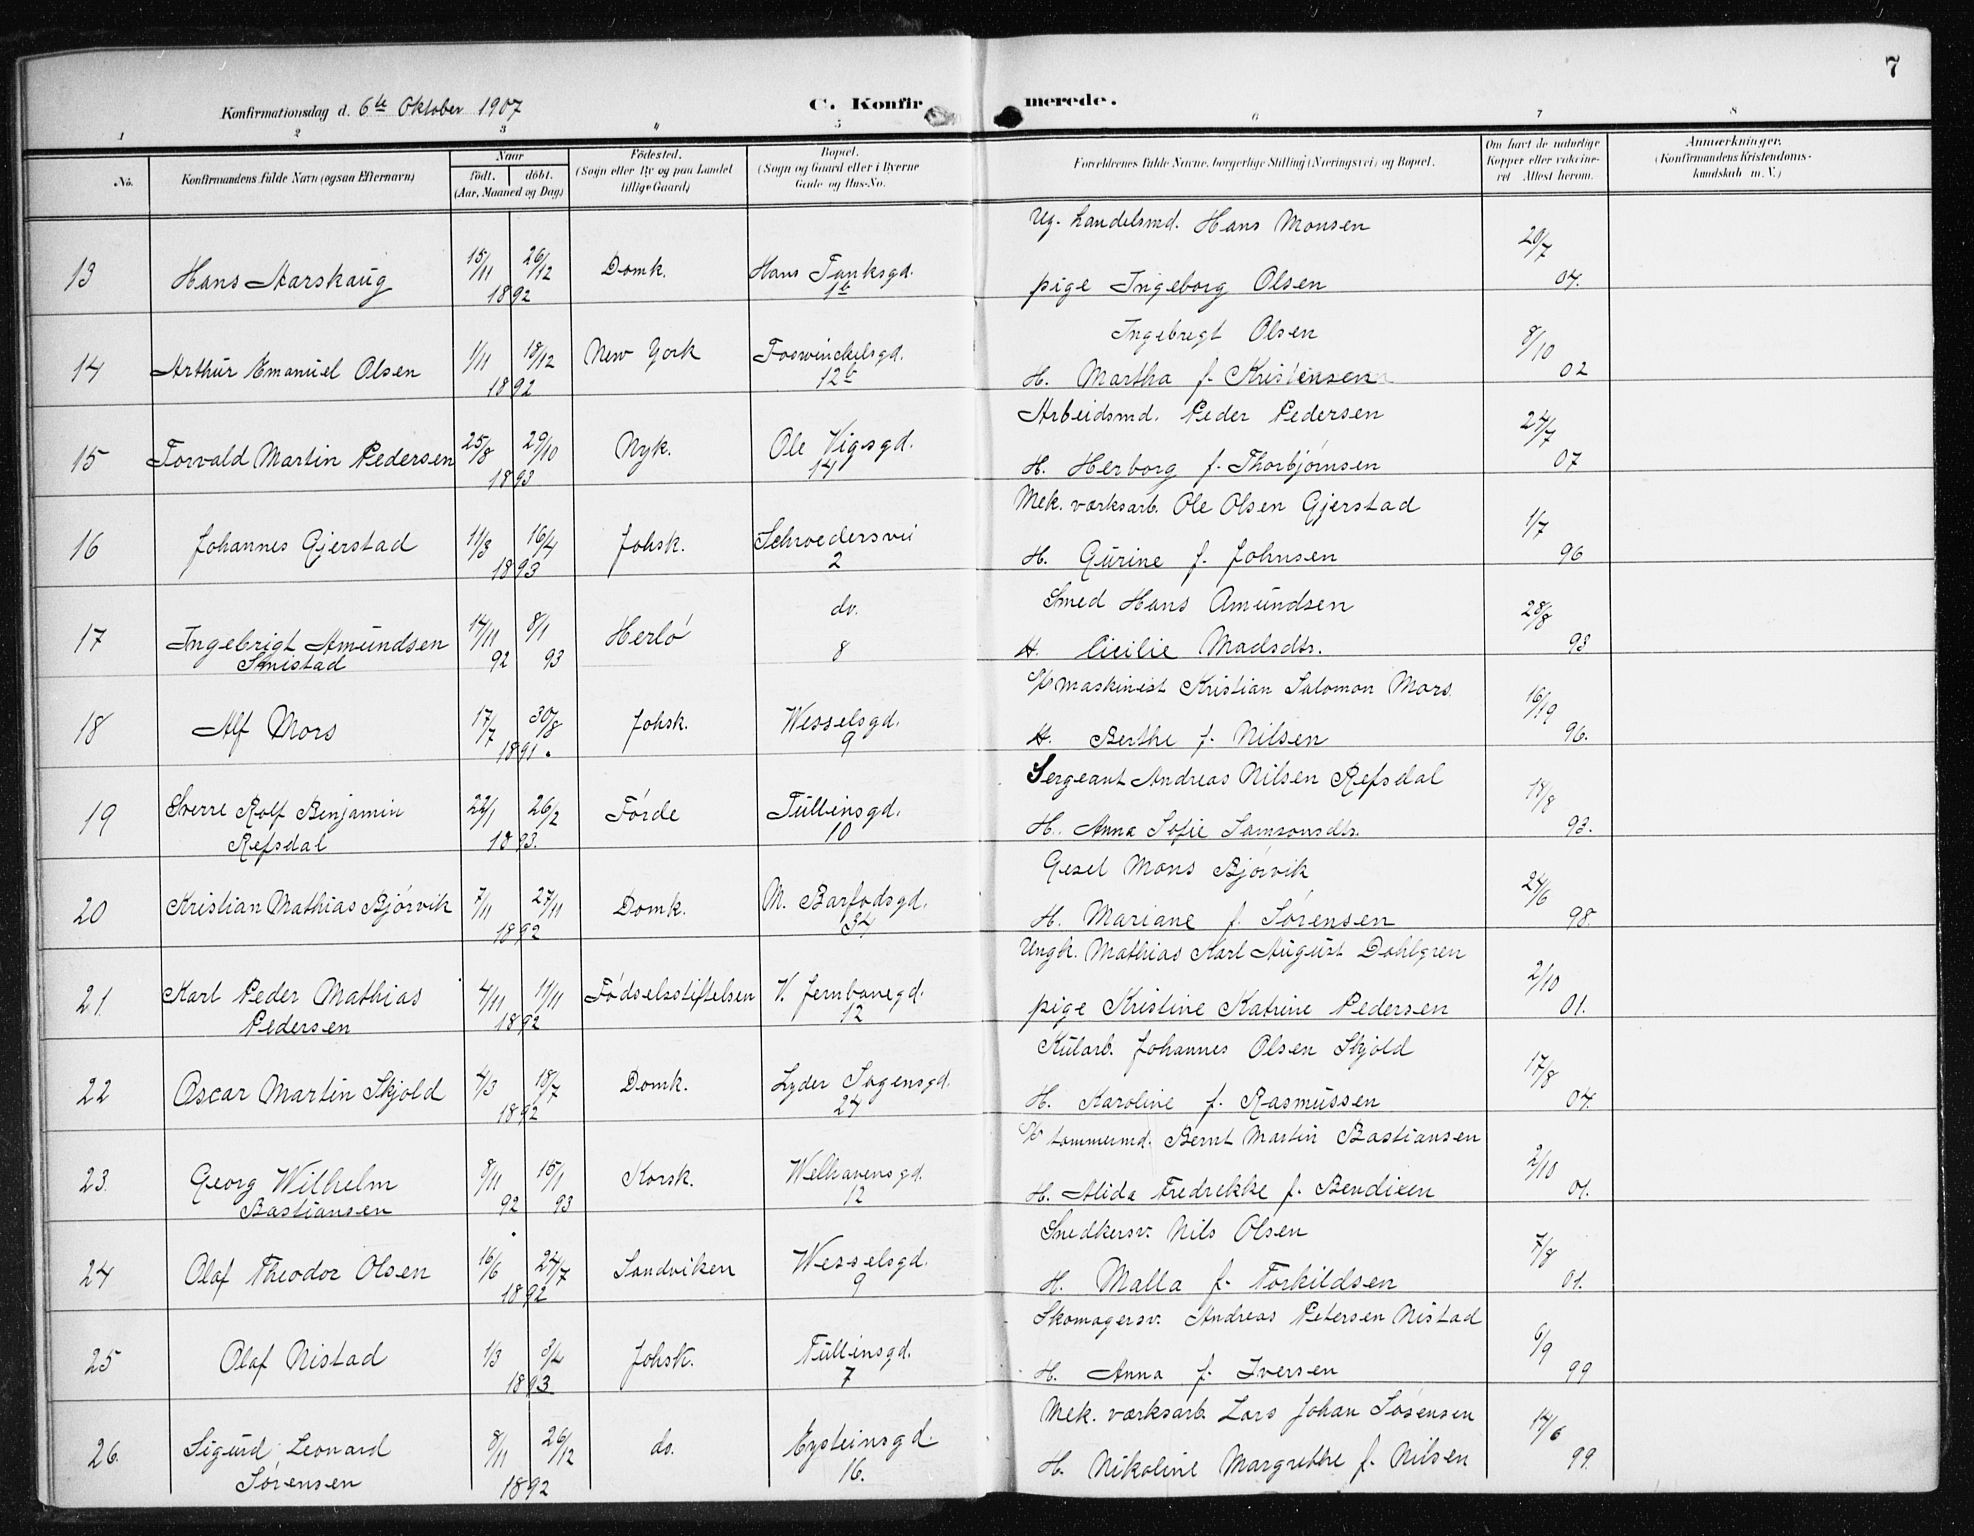 7
Konfirmationsdag d. 6te Oktober 1907
C. Konfirmerede.
1 2 3 4 5 6 7 8
No.
Konfirmandens fulde Navn (ogsaa Efternavn)
Naar
født. døbt.
(Aar, Maaned og Dag)
Fødested.
(Sogn eller By og paa Landet
tillige Gaard)
Bopæl.
(Sogn og Gaard eller i Byerne
Gade og Hus-No.
Forældrenes fulde Navne, borgerlige Stilling (Næringsvei) og Bopæl.
Om havt de naturlige
Kopper eller vakcine-
ret Attest herom.
Anmærkninger.
(Konfirmandens Kristendoms-
kundskab m. V.)
Ug. handelsmd. Hans Monsen
13 Hans Aarskaug 15/11 26/12 1892 Domk. Hans Tanksgd. 1b pige Ingeborg Olsen 20/7 04.
Ingebregt Olsen
14 Arthur Emanuel Olsen 1/11 18/12 1892 New York Foswinckelsgd. 12b H. Martha f. Kristensen 8/10 02
Arbeidsmd. Peder Pedersen
15 Torvald Martin Pedersen 25/8 29/10 1893 Nyk. Ole Vigsgd. 14 H. Herborg f. Thorbjørnsen 24/7 07
Mek. værksarb. Ole Olsen Gjerstad
16 Johannes Gjerstad 11/3 16/4 1893 Johsk. Schroedersvei 2 H. Gurine f. Johnsen 1/7 96
Smed Hans Amundsen
17 Ingebrigt Amundsen 17/11 8/1 Herlö do. H. Cicilie Madsdtr. 28/8
Smistad 92 93 8 93
maskinist Kristian Salomon Mors.
18 Alf Mors 17/7 30/8 1891. Johsk. Wesselsgd. 9 H. Berthe f. Nilsen 16/19 96.
Sergeant Andreas Nilsen Refsdal
19 Sverre Rolf Benjamin 22/1 26/2 Förde Tullinsgd. H. Anna Sofie Samsonsdtr. 18/8
Refsdal 1893. 10 93.
Gesel Mons Bjørvik
20 Kristian Mathias Bjørvik 7/11 27/11 1892 Domk. M. Barfodsgd. 34 H. Mariane f. Sørensen 24/6 98.
Ungk. Mathias Karl August Dahlgren
21. Karl Peder Mathias 4/11 11/11 Fødselsstiftelsen V. Jernbanegd. pige Kristine Katrine Pedersen 2/10
Pedersen 1892 12 01.
Kularb. Johannes Olsen Skjold
22 Oscar Martin Skjold 4/3 18/7 1892 Domk. Lyder Sagensgd. 24 H. Karoline f. Rasmussen 17/8 04.
tømmermd. Bernt Martin Bastiansen
23. Georg Wilhelm 8/11 15/1 Korsk. Welhavensgd. H. Alida Fredrekke f. Bendixen 2/10
Bastiansen 92 93 12 01.
Snedkersv. Nils Olsen
24 Olaf Theodor Olsen 16/6 24/7 1892 Sandviken Wesselsgd. 9 H. Malla f. Torkildsen 7/8 01.
Skomagersv. Andreas Petersen Nistad
25 Olaf Nistad 1/3 3/4 1893 Johsk. Tullinsgd. 7 H. Anna f. Iversen 6/9 99
Mek. værksarb. Lars Johan Sørensen
26. Sigurd Leonard 8/11 26/12 do. Eysteinsgd. H. Nikoline Margrethe f. Nilsen 14/6
Sørensen 1892 16. 99.